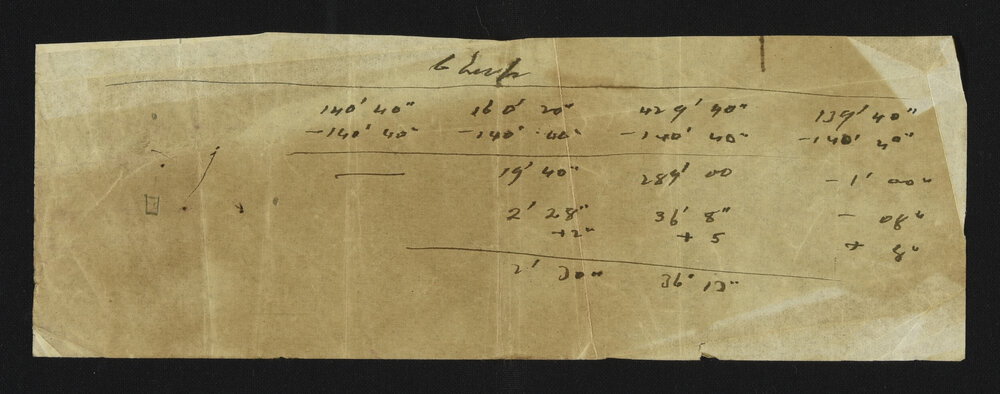 140′ 40″ 160′ 20″ 429′ 40″ 139′ 40″
–140′ 40″ –140′ 40″ –140′ 40″ –140′ 40″
— 19′ 40″ 289′ 00 –1′ 00″
2′ 28″ 36′ 8″ – 08″
+2″ + 5 + 8″
2′ 30″ 36′ 13″